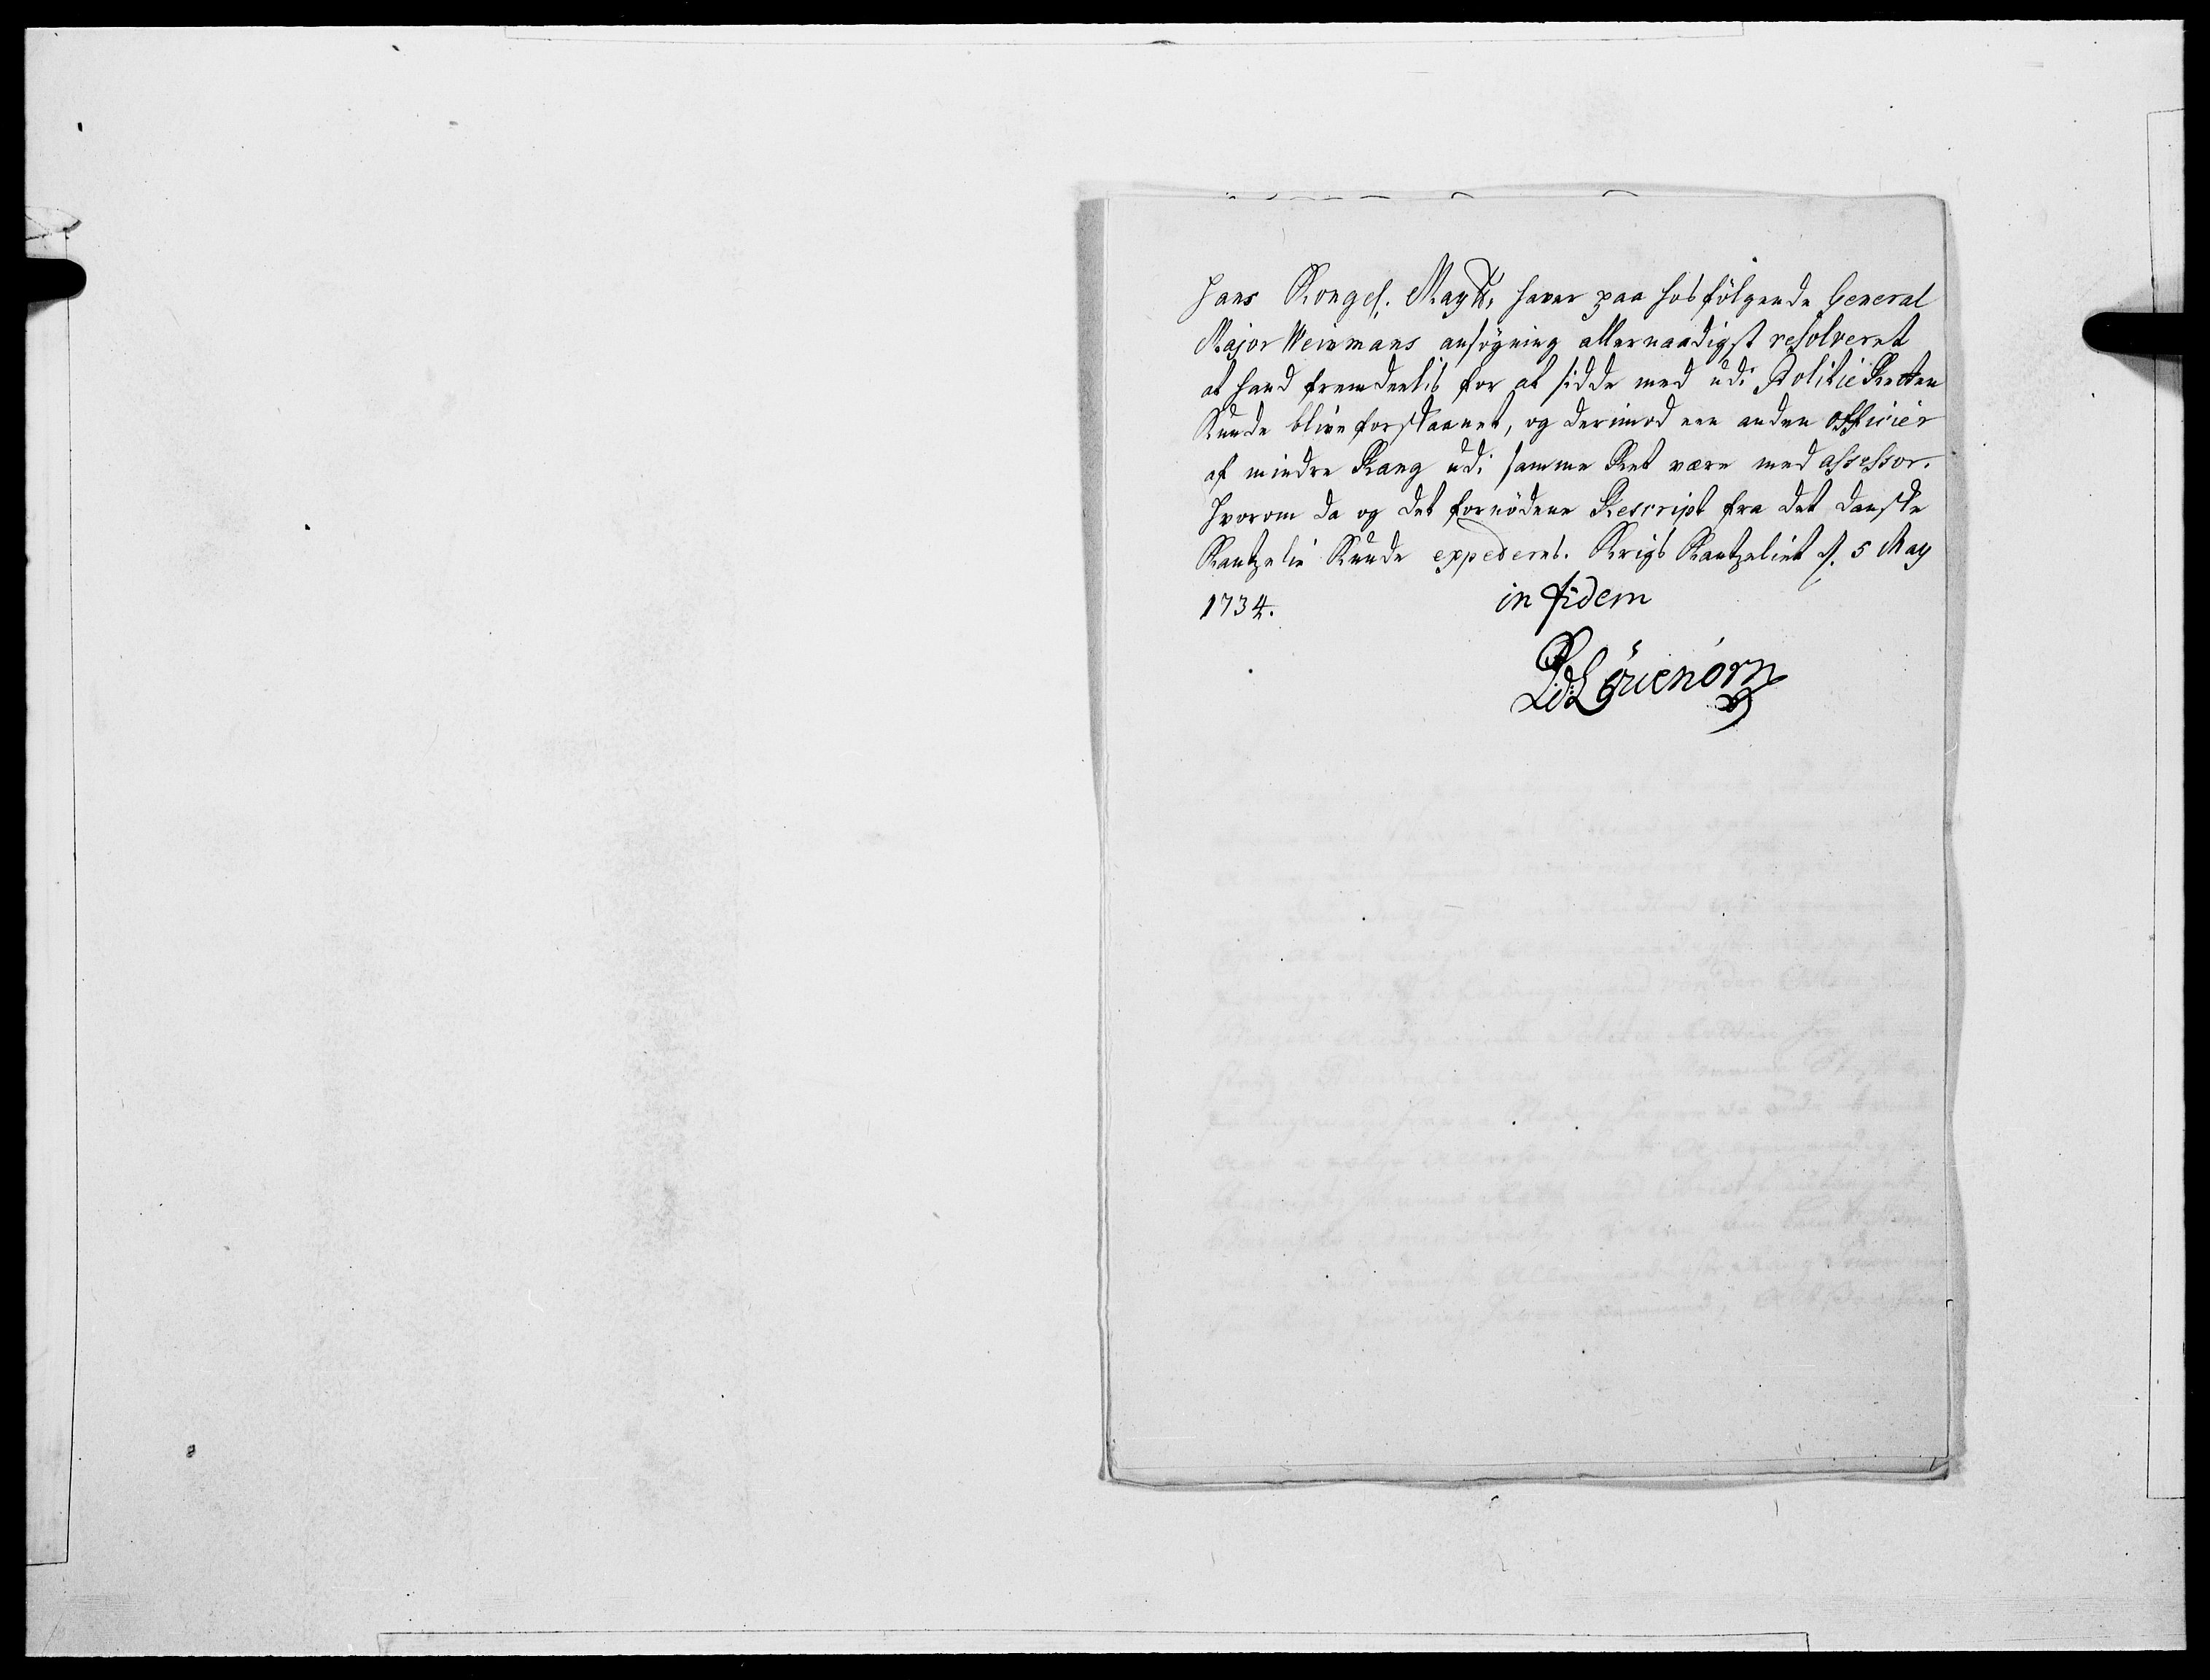 Hans Kongel. Maytt, haver paa hosfölgende General
Major Weinmans ansögning allernaadigst resolveret
at hand fremdeelis for at sidde med udi Politie Retten
Kunde blive forskaanet, og derimod een anden officier
af mindre Rang udi samme Ret være med assessor.
Hvorom da og det fornödene Rescript fra det danske
Kantzelie Kunde expederes. Krigs Kantzeliet d. 5 May
1734. in fidem
P d Lövenörn